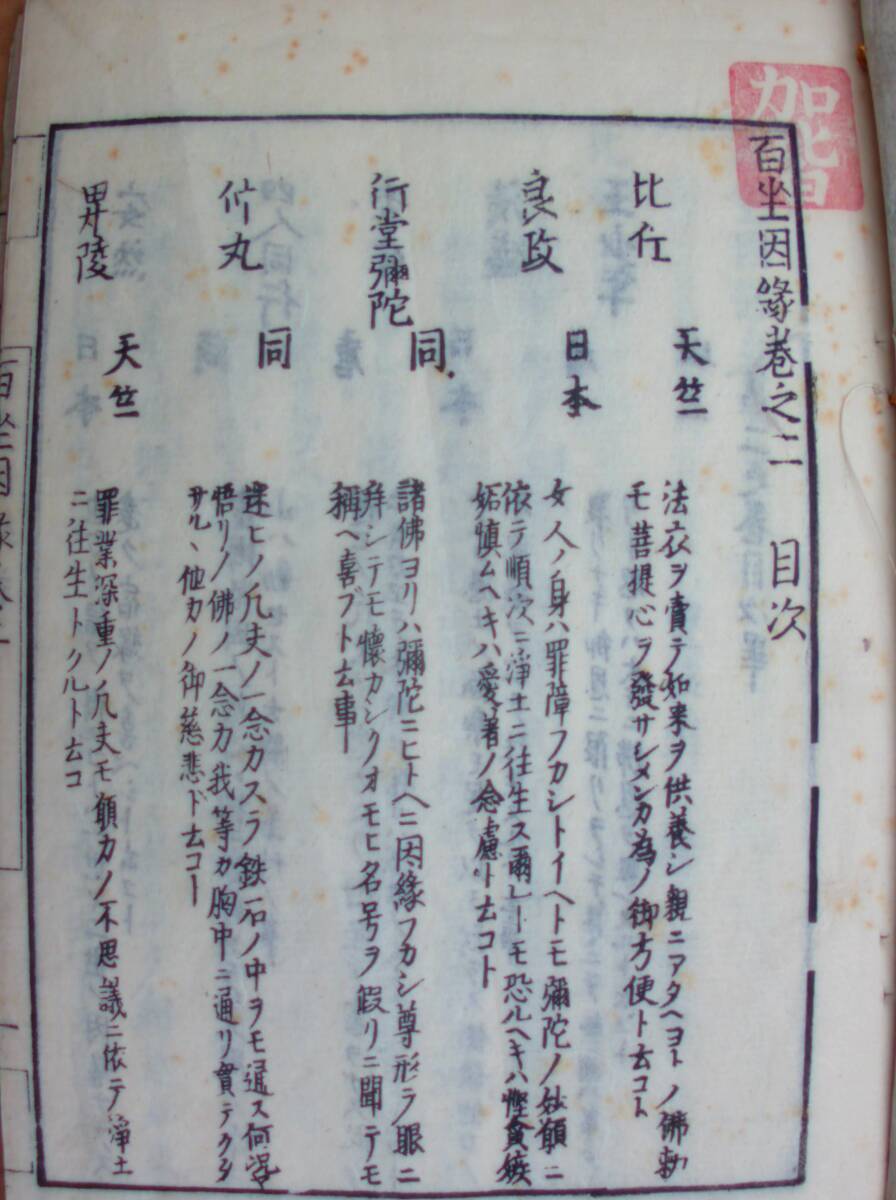 百坐因縁卷之二 目次
比丘 天竺
法衣ヲ賣テ如来ヲ供養シ親ニアタヘヨトノ佛勅
モ菩提心ヲ發サシメンカ為ノ御方便ト云コト
良政 日本
女人ノ身ハ罪障フカシトイヘトモ彌陀ノ妙願ニ
依テ順次ニ浄土ニ往生ス爾レーモ恐ルヘキハ慳貪嫉
妬慎ムヘキハ愛著ノ念慮ト云コト
行堂彌陀 同
諸佛ヨリハ彌陀ニヒトヘニ因縁フカシ尊形ヲ眼ニ
拜シテモ懐カシクオモヒ名号ヲ假リニ聞テモ
稱ヘ喜ブト云事
竹丸 同
迷ヒノ凡夫ノ一念カスラ鉄石ノ中ヲモ通ス何況
悟リノ佛ノ一念力我等カ胸中ニ通リ貫テクシ
サル、他力ノ御慈悲ド云コー
毘陵 天竺
罪業深重ノ凡夫モ願力ノ不思議ニ依テ浄土
ニ往生トクルト云コ